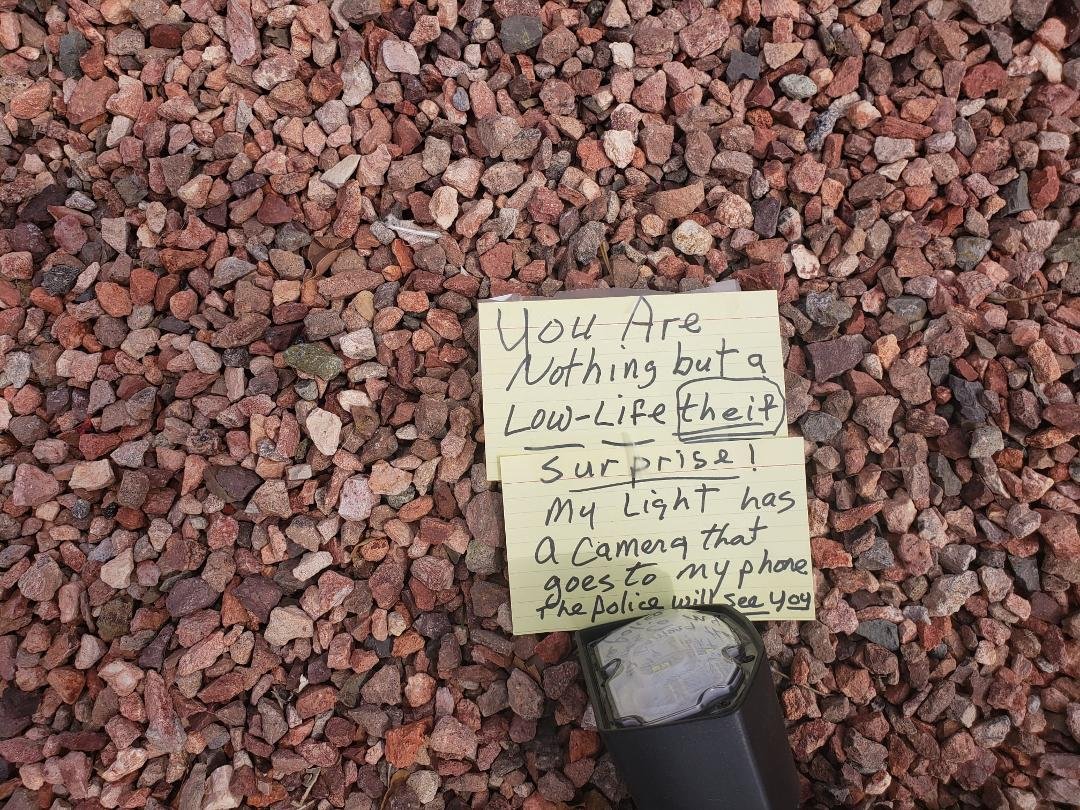 You Are
Nothing but a
Low-Life theif
surprise!
My Light has
a camera that
goes to my phone
the police will see you